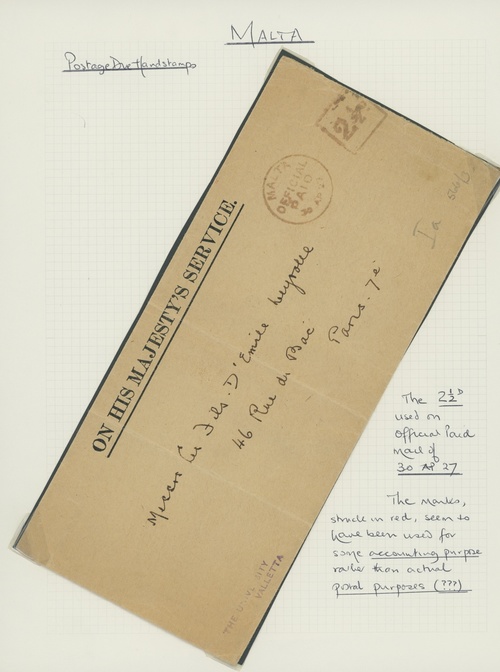 MALTA
Postage Due Handstamps
2½
MALTA
OFFICIAL
PAID
30 AP 27
Ia
ON HIS MAJESTY'S SERVICE.
Messrs Les Fils. D'Emile Deyrolle
46 Rue du Bac
Paris. 7e
THE UNIVERSITY
VALLETTA
The 2½D
used on
Official Paid
Mail of
30 AP 27
The marks,
struck in red, seem to
have been used for
some accounting purpose
rather than actual
postal purposes (???)